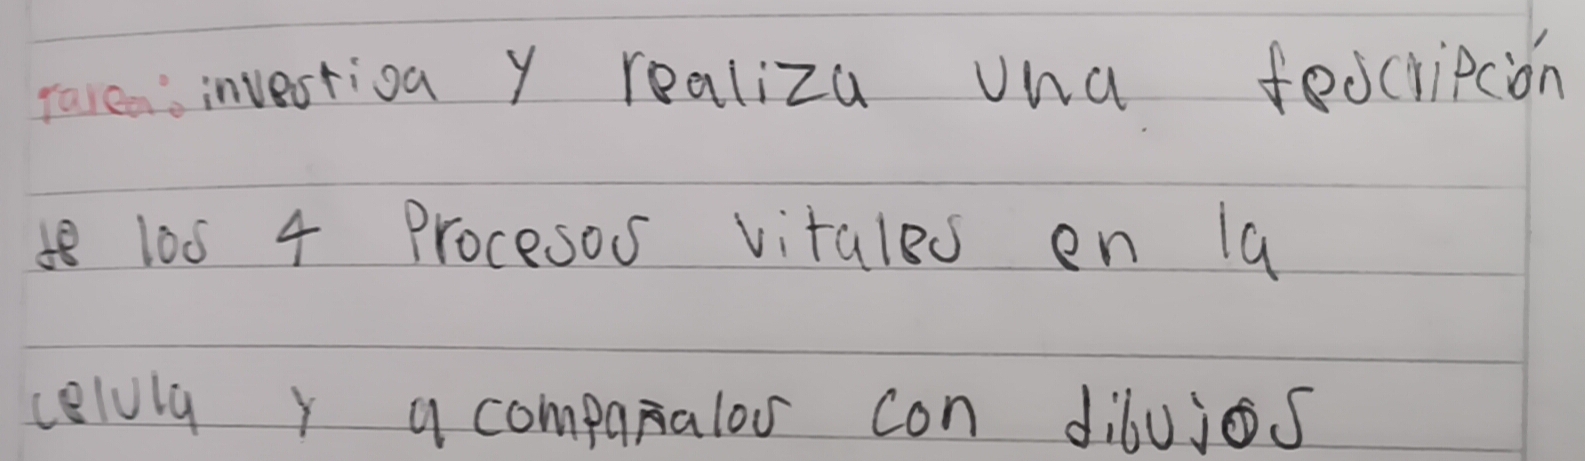 tarea: investiga y realiza una descripción
de los 4 Procesos vitales en la
celula y acompañalos con dibujos